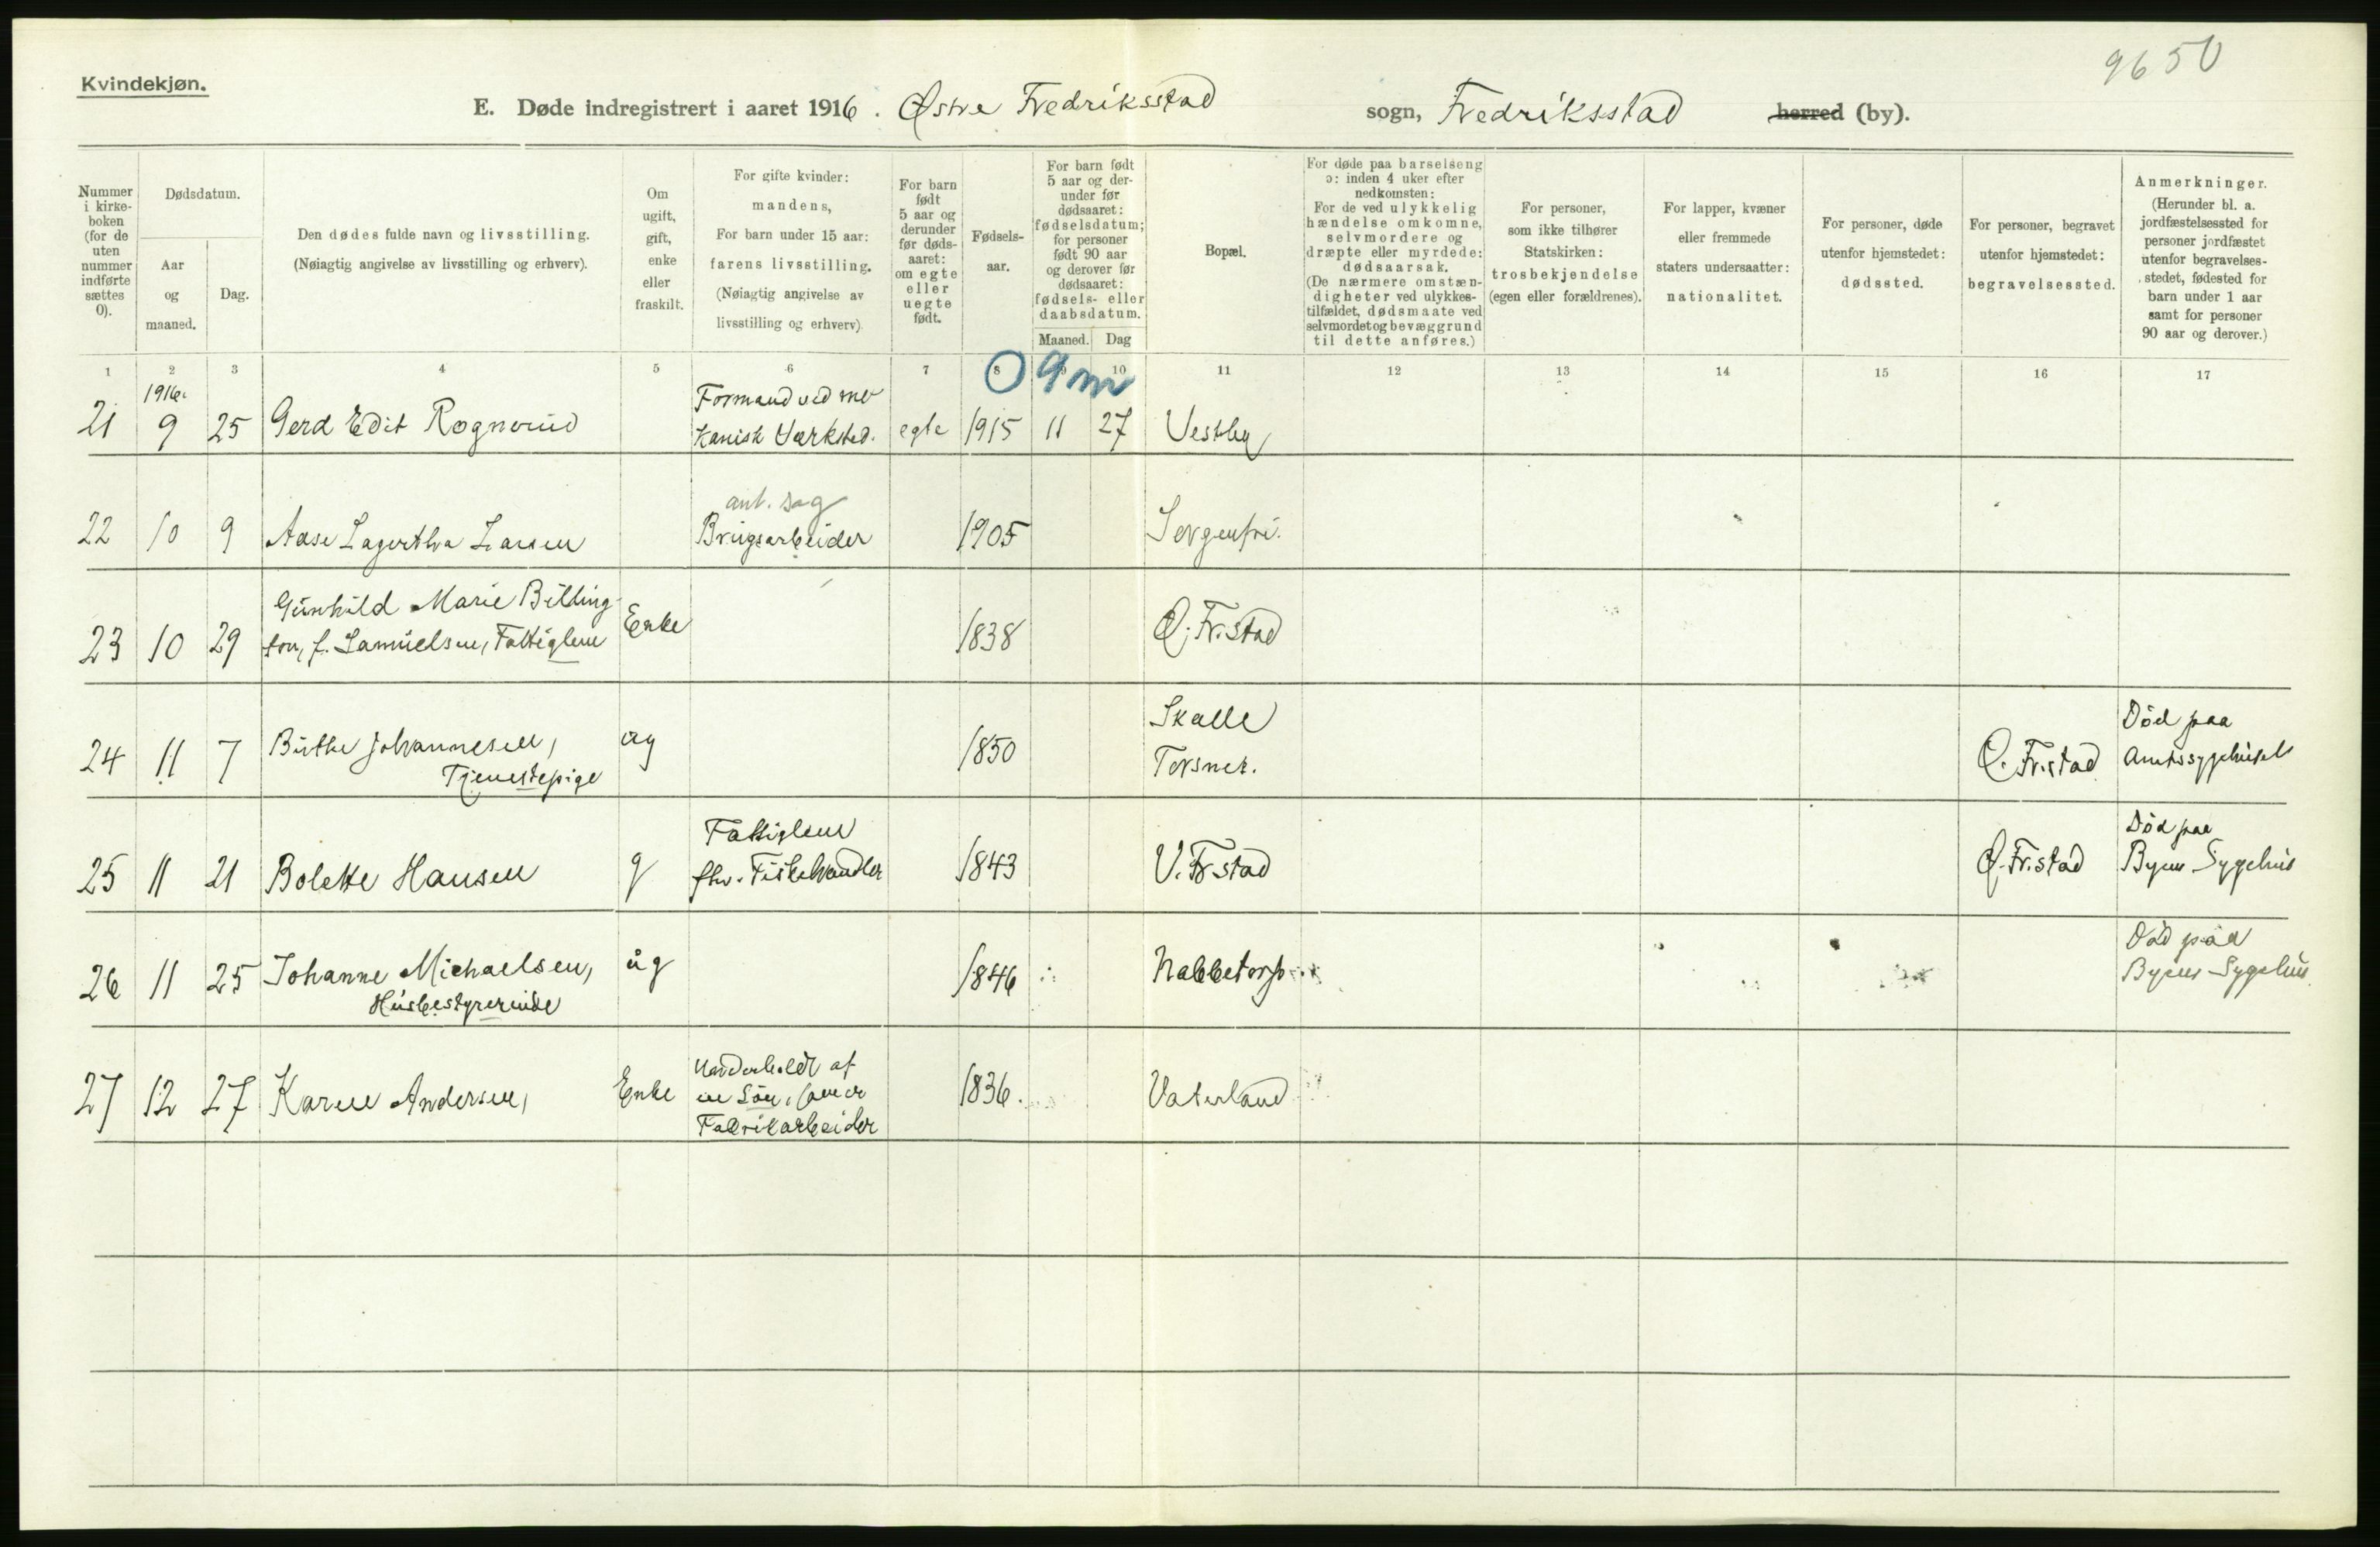 9650
Kvindekjøn.
E. Døde indregistrert i aaret 1916. Østre Fredriksstad sogn, Fredriksstad herred (by).
Nummer i kirkeboken (for de uten nummer indførte sættes 0).
Dødsdatum.
Aar og maaned.
Dag.
Den dødes fulde navn og livsstilling.
(Nøiagtig angivelse av livsstilling og erhverv).
Om ugift, gift, enke eller fraskilt.
For gifte kvinder: mandens,
For barn under 15 aar: farens livsstilling.
(Nøiagtig angivelse av livsstilling og erhverv)
For barn født 5 aar og derunder før dødsaaret: om egte eller uegte født.
Fødselsaar.
For barn født 5 aar og derunder før dødsaaret: fødselsdatum; for personer født 90 aar og derover før dødsaaret: fødsels- eller daabsdatum.
Maaned. Dag
Bopæl.
For døde paa barselseng ɔ: inden 4 uker efter nedkomsten:
For de ved ulykkelig hændelse omkomne, selvmordere og dræpte eller myrdede: dødsaarsak.
(De nærmere omstændigheter ved ulykkestilfældet, dødsmaate ved selvmordet og bevæggrund til dette anføres.)
For personer, som ikke tilhører Statskirken: trosbekjendelse (egen eller forældrenes).
For lapper, kvæner eller fremmede staters undersaatter: nationalitet.
For personer, døde utenfor hjemstedet: dødssted.
For personer, begravet utenfor hjemstedet: begravelsessted.
Anmerkninger.
(Herunder bl. a. jordfæstelsessted for personer jordfæstet utenfor begravelsesstedet, fødested for barn under 1 aar samt for personer 90 aar og derover.)
1 2 3 4 5 6 7 8 9 10 11 12 13 14 15 16 17
0 9 m
1916. Formand ved me-
21 9 25 Gerd Edit Rognerud kanisk Værksted. egte 1915 11 27 Vestby
ant. sag
22 10 9 Aase Lagertha Larsen Brugsarbeider 1905 Sorgenfri.
Gunhild Marie Billing-
23 10 29 ton, f. Samuelsen, Fattiglem Enke 1838 Ø. Fr.stad
Skalle Død paa
24 11 7 Birthe Johannesen, ug 1850 Torsnes. Ø. Fr.stad Amtssygehuset
Tjenestepige
Fattiglem Død paa
25 11 21 Bolette Hansen g fhv. Fiskehandler 1843 V. Fr.stad Ø. Fr.stad Byens Sygehus
Død paa
26 11 25 Johanne Michaelsen, ug 1846 Nabbetorp Byens Sygehus
Husbestyrerinde
Underholdt af
27 12 27 Karen Andersen, Enke en Søn, som er 1836. Vaterland
Fabrikarbeider